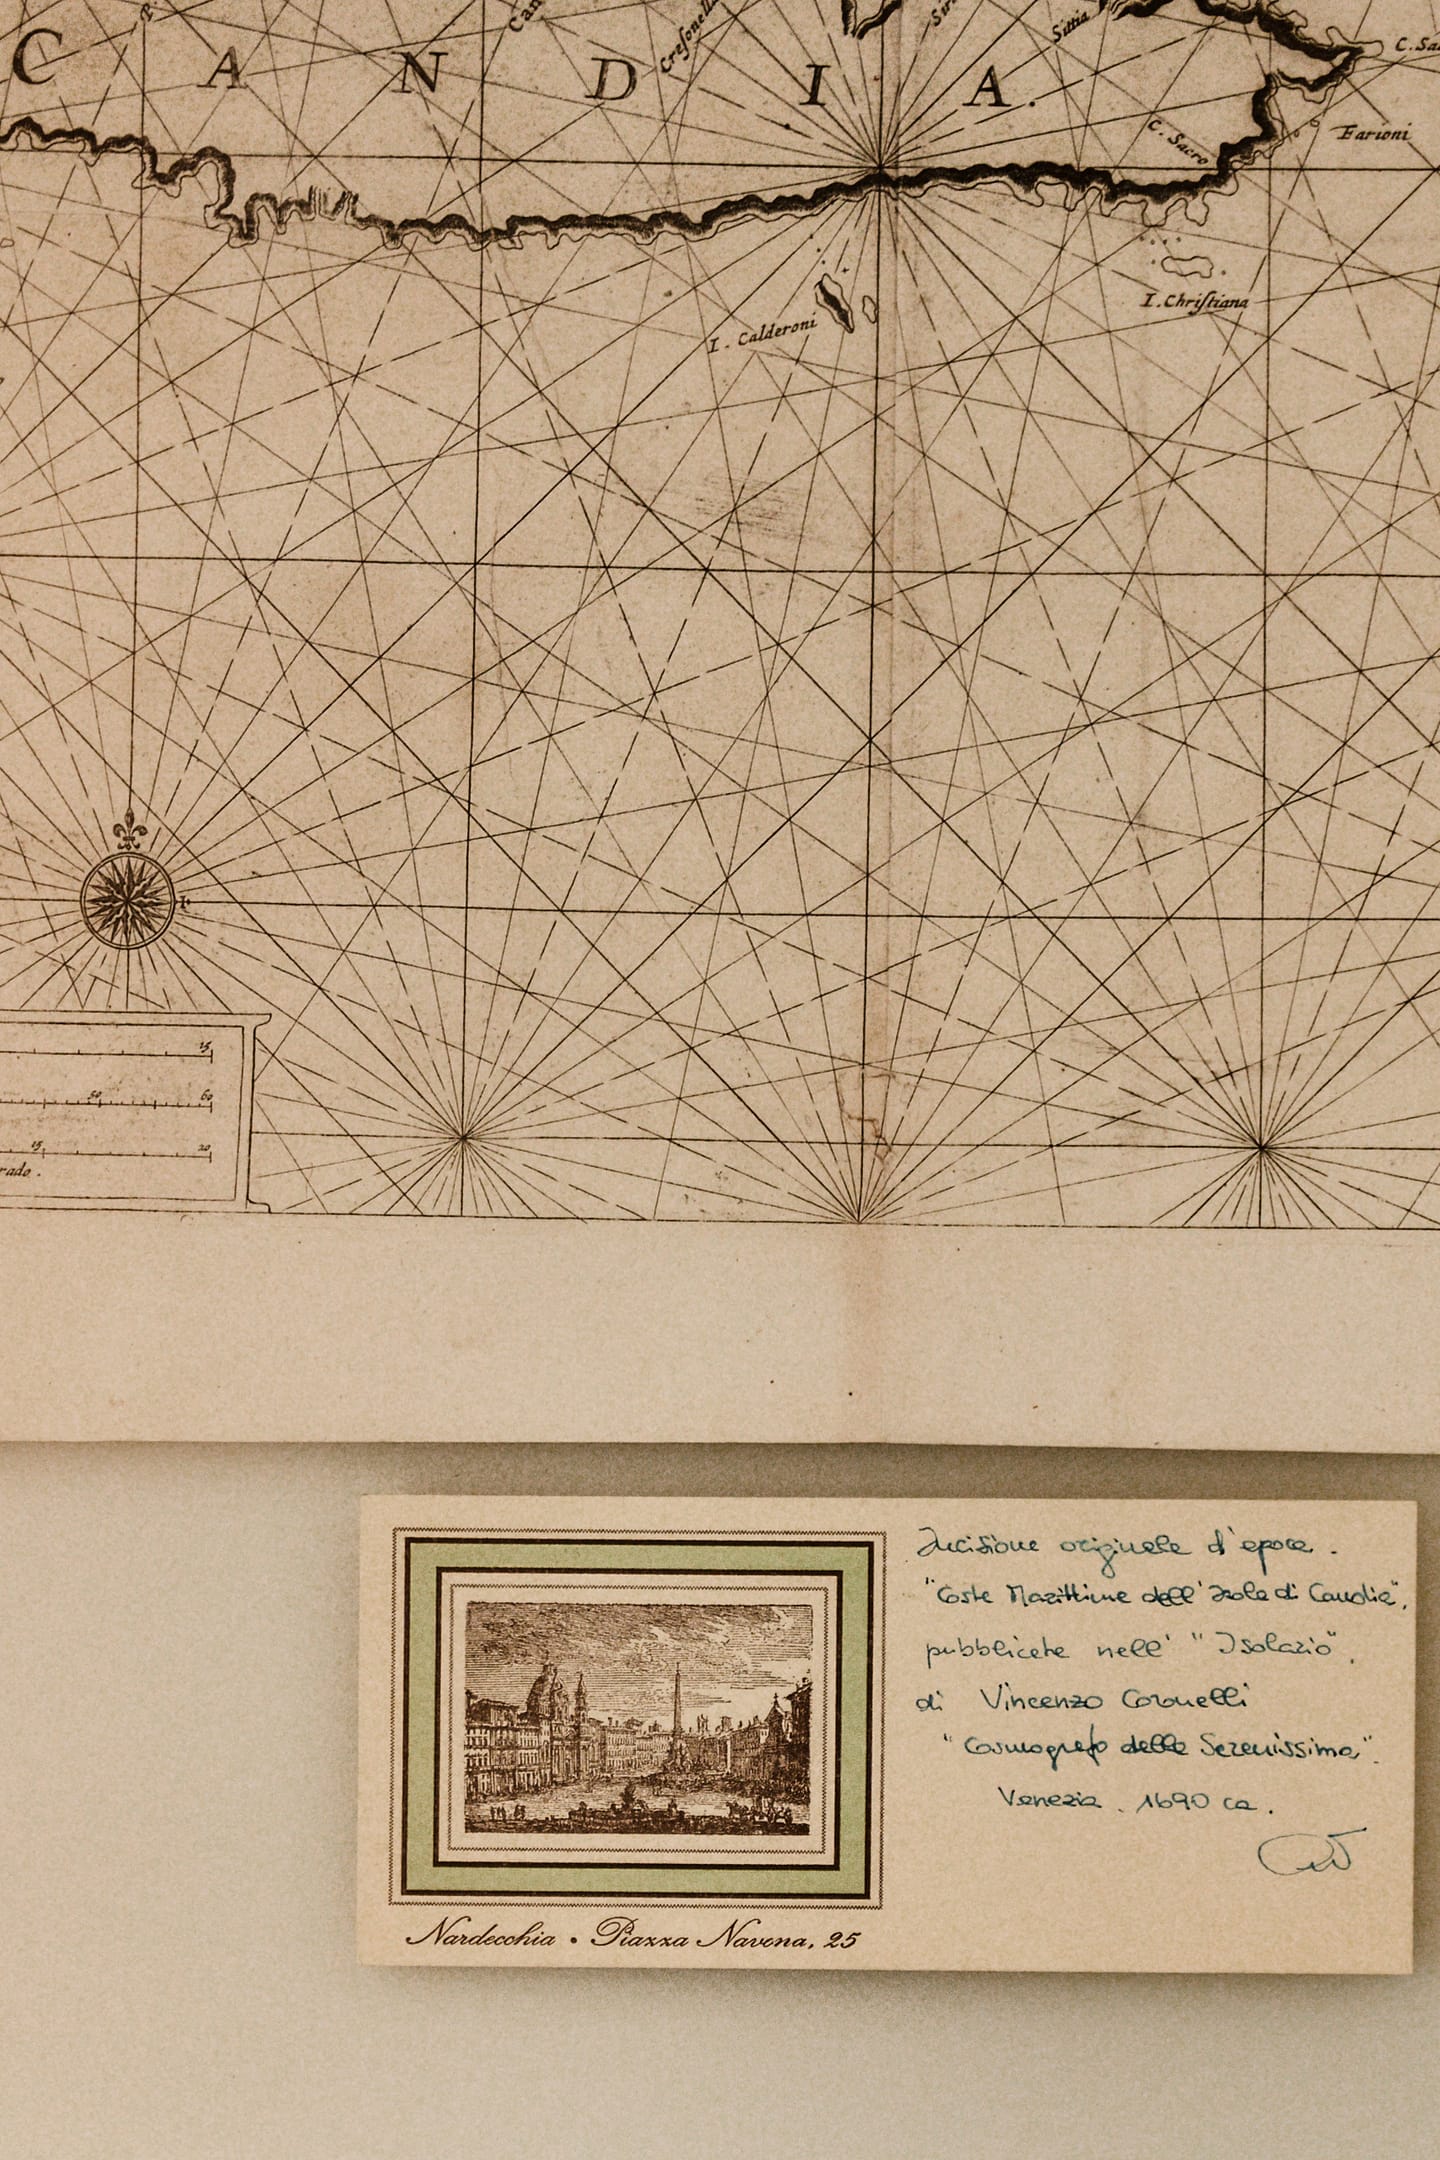 CANDIA.
Sittia
C. Sacro
Farioni
I. Calderoni
I. Chriſtiana
15
50 60
15 20
rado.
Incisione originale d'epoca.
"Coste Marittime dell'Isola di Candia",
pubblicate nell' "Isolario",
di Vincenzo Coronelli
"Cosmografo della Serenissima".
Venezia. 1690 ca.
Nardecchia • Piazza Navona, 25